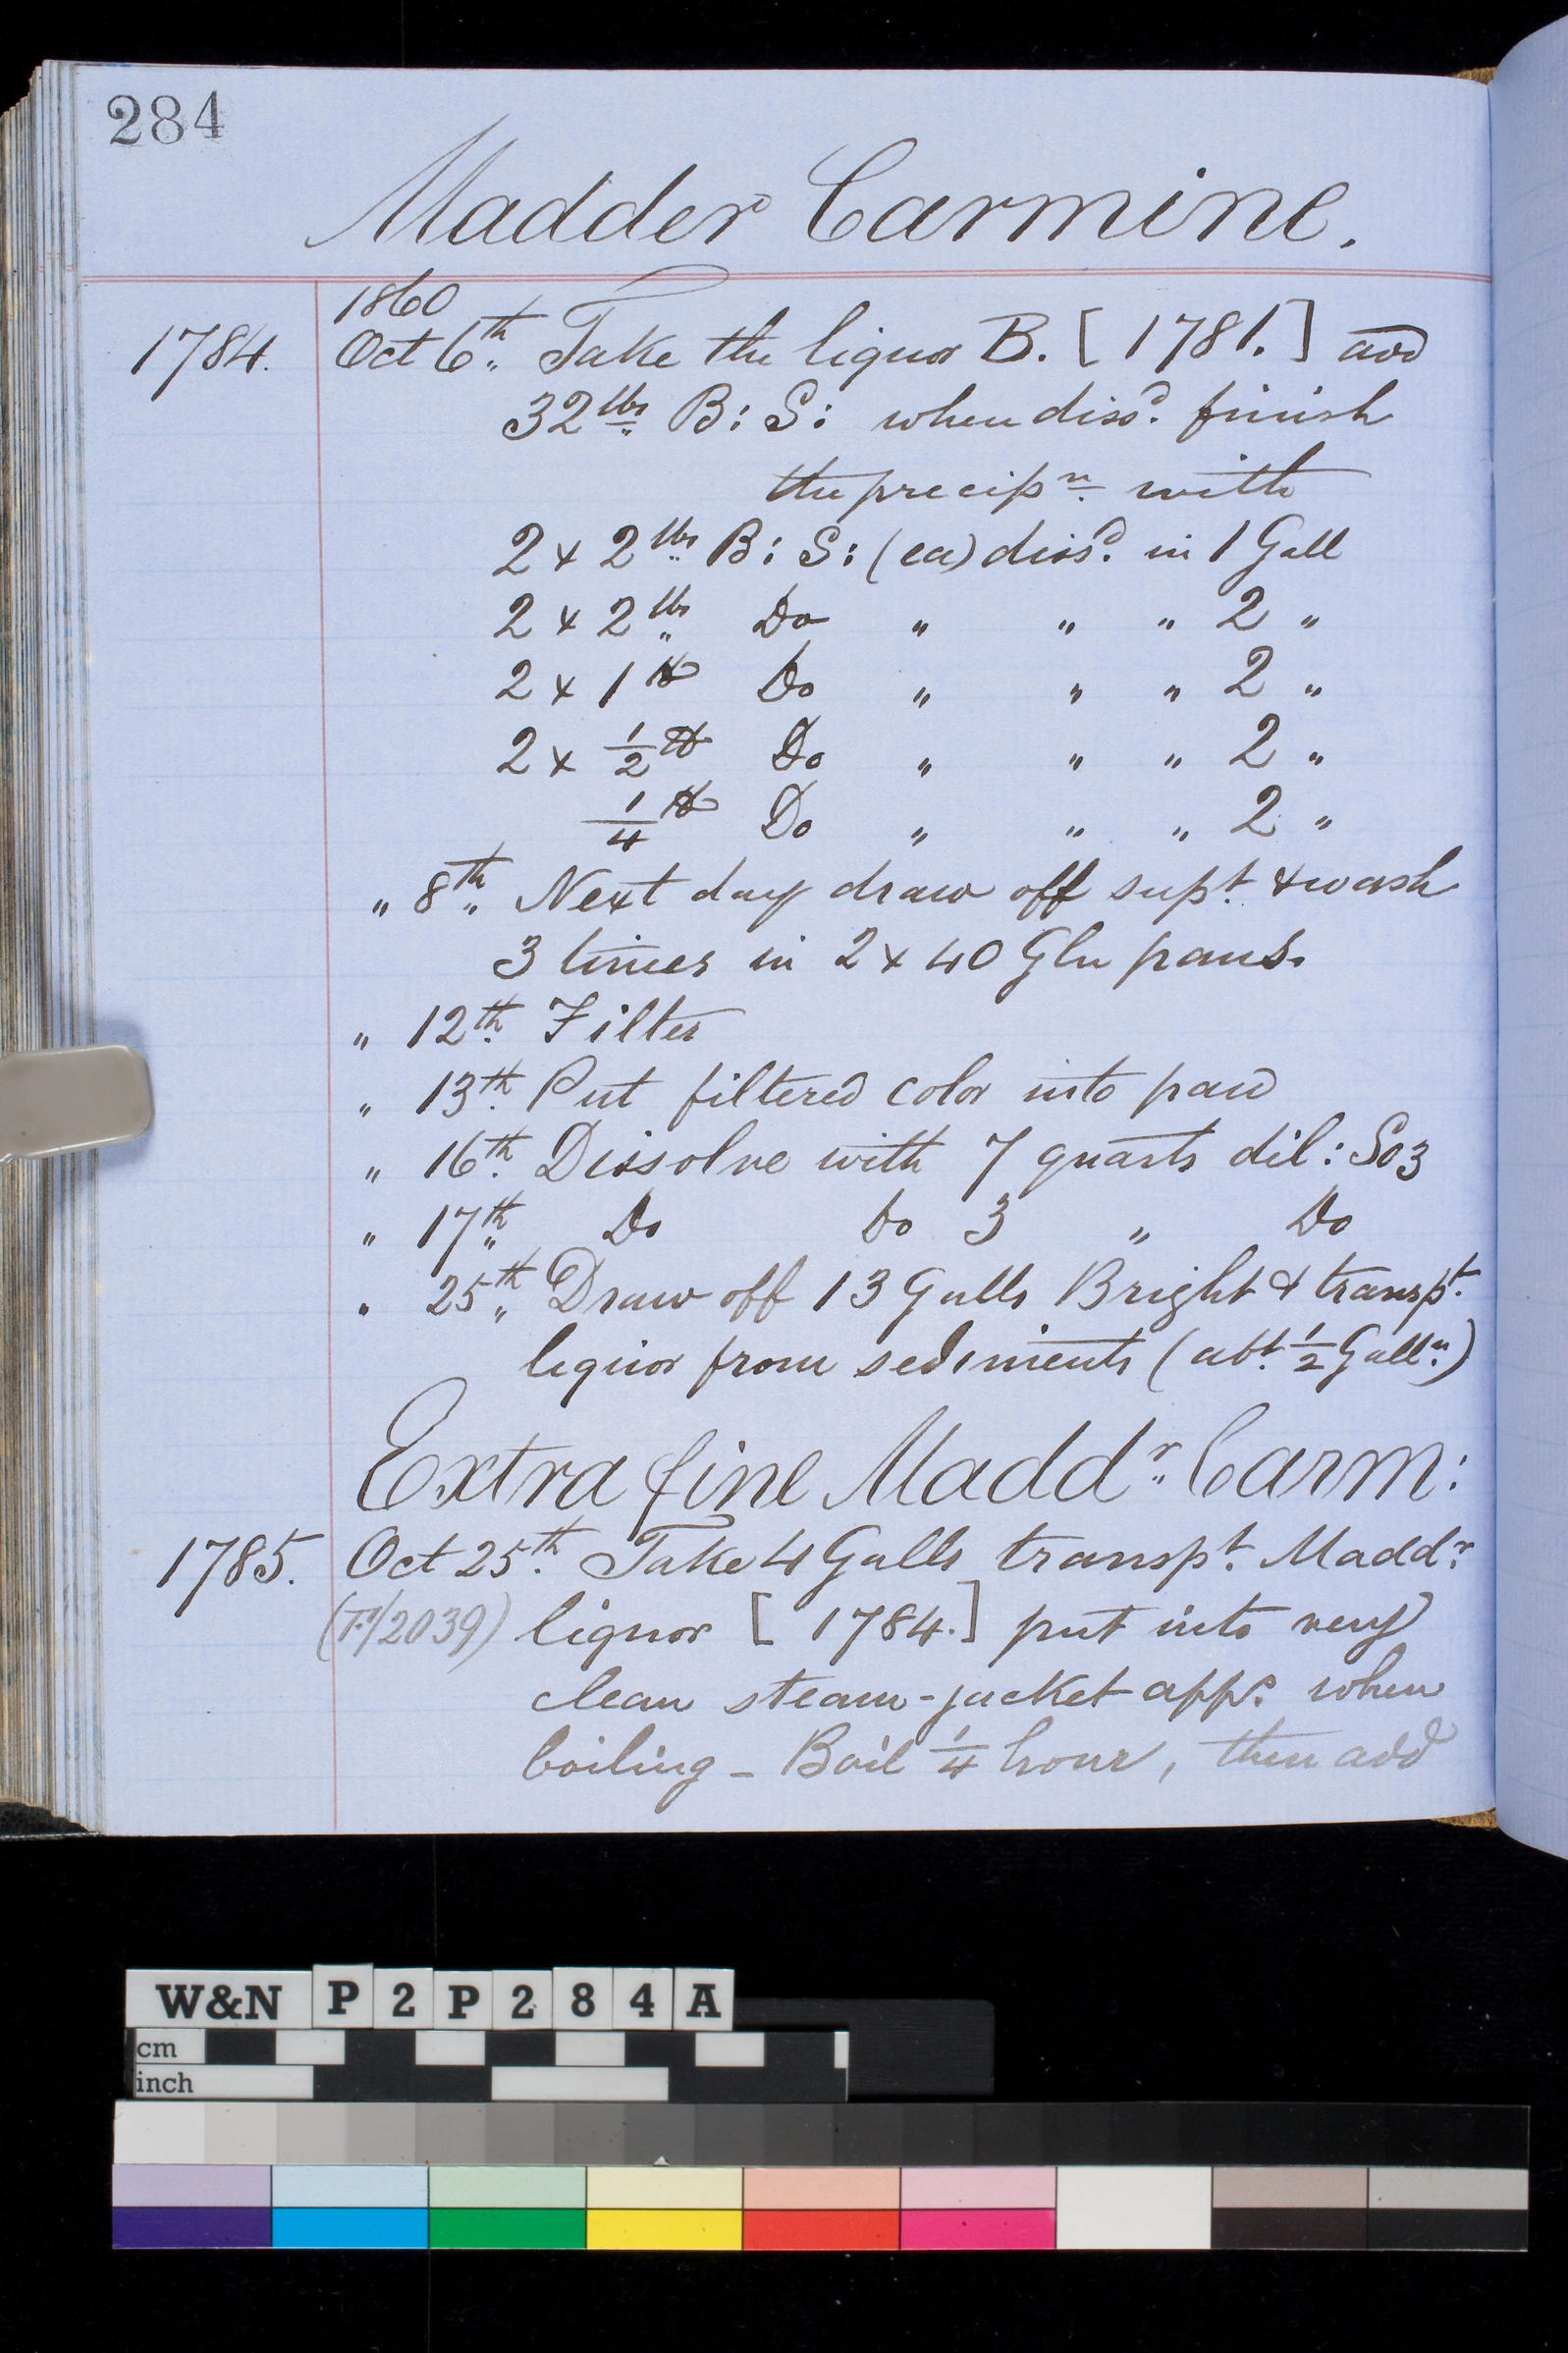 284
Madder Carmine.
1860
1784. Oct 6th. Take the liquor B. [1781.] add
32 lbs B: S: when dissd. finish
the precipn. with
2 x 2 lbs B: S: (ea) dissd. in 1 Gall
2 x 2 lbs Do " " " 2 "
2 x 1 lb Do " " " 2 "
2 x 1/2 lb Do " " " 2 "
1/4 lb Do " " " 2 "
" 8th. Next day draw off supt. & wash
3 times in 2 x 40 Gln pans.
" 12th. Filter
" 13th. Put filtered color into pan
" 16th. Dissolve with 7 quarts dil: SO3
" 17th. Do Do 3 " Do
" 25th. Draw off 13 Galls Bright & transpt.
liquor from sediments (abt. 1/2 Galln.)
Extra fine Maddr. Carm:
1785. Oct 25th. Take 4 Galls transpt. Maddr.
liquor [1784.] put into very
clean steam-jacket apps. when
boiling - Boil 1/4 hour, then add
W&N P2P284A
cm
inch